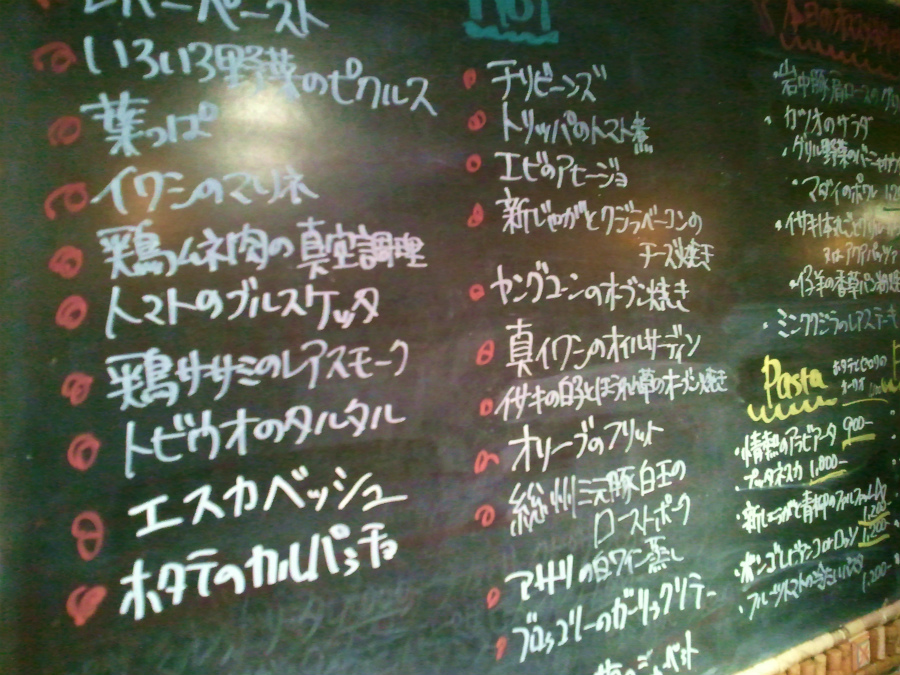 レバーペースト
いろいろ野菜のピクルス
葉っぱ
イワシのマリネ
鶏ムネ肉の真空調理
トマトのブルスケッタ
鶏ササミのレアスモーク
トビウオのタルタル
エスカベッシュ
ホタテのカルパッチョ
Hot
チリビーンズ
トリッパのトマト煮
エビのアヒージョ
新じゃがとクジラベーコンの
チーズ焼き
ヤングコーンのオーブン焼き
真イワシのオイルサーディン
イサキの白子とほうれん草のオーブン焼き
オリーブのフリット
総州三元豚白王の
ローストポーク
アサリの白ワイン蒸し
ブロッコリーのガーリックソテー
本日の
岩中豚肩ロースのグリ
カツオのサラダ
グリル野菜のバーニャカウ
マダイのポワレ
イサキ1本丸ごと
又はアクアパッツァ
仔羊の香草パン粉焼
ミンククジラのレアステーキ
Pasta
情熱のアラビアータ 900-
プッタネスカ 1,000-
1,200-
ボンゴレビアンコ 1,200-
フルーツトマトの冷たい 1,200-